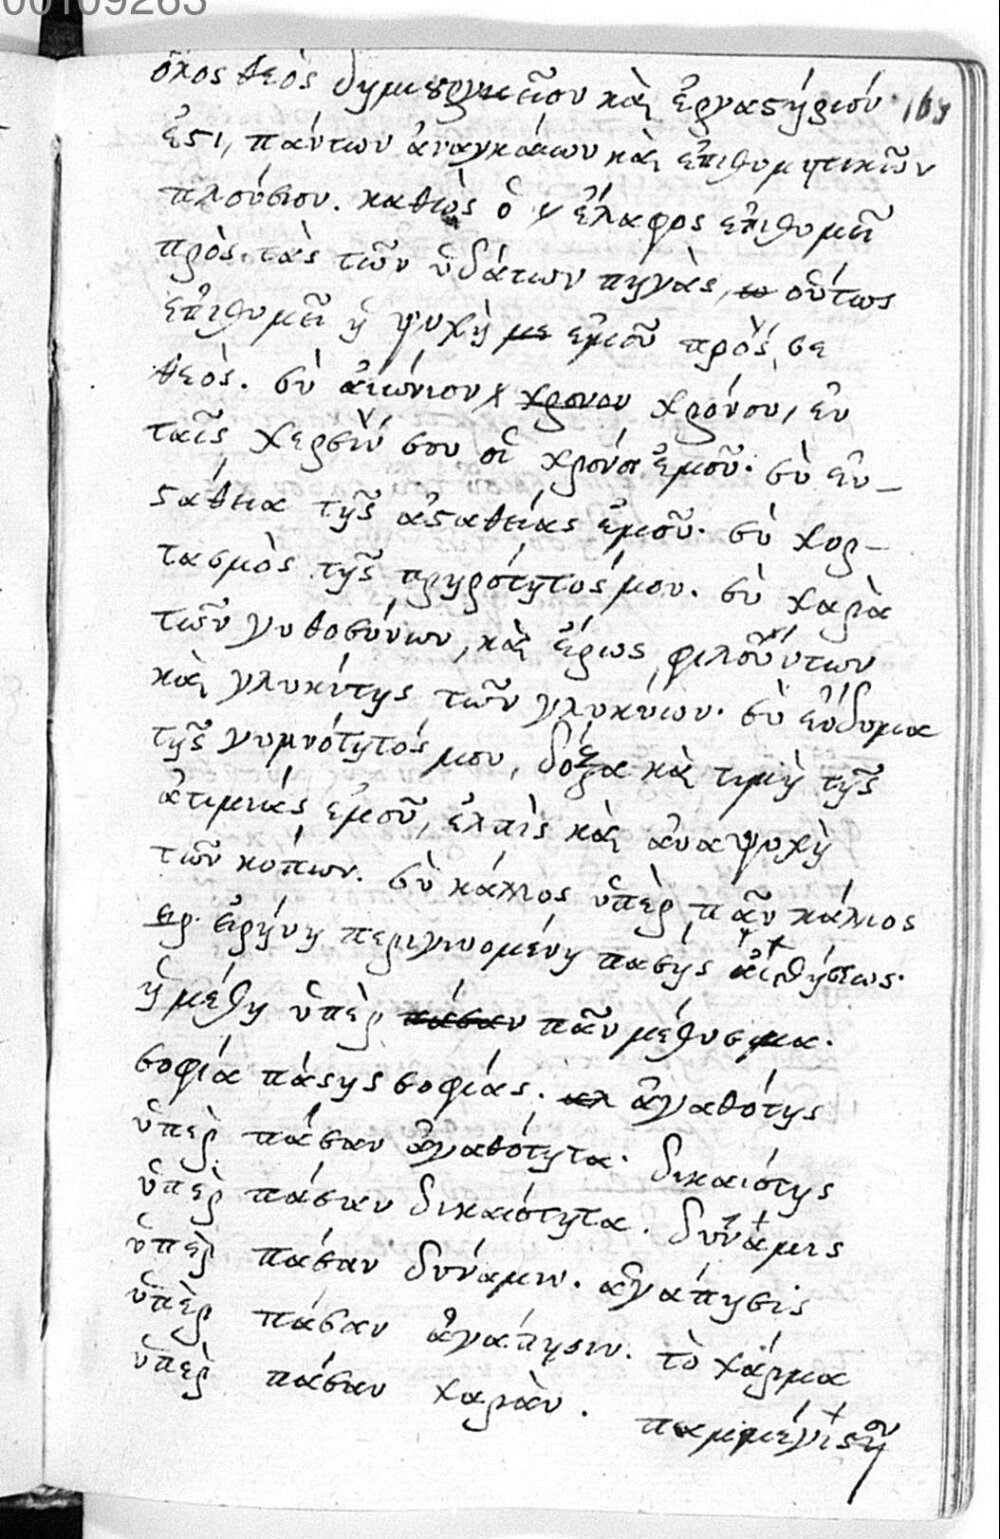 00109263
ὅλος θεὸς δημιȣργικεῖον καὶ ἐργαϛήριόν 169
ἐϛι, πάντων ἀναγκάιων καὶ ἐπιθυμητικῶν
πλούσιον. καθὼς ὁ ἔλαφος ἐπιθυμεῖ
πρὸς τὰς τῶν ὑδάτων πηγὰς, οὕτως
ἐπιθυμεῖ ἡ ψυχὴ με ἐμοῦ πρός σε
θεὸς. σὺ αἰώνιον χρονον χρόνου, ἐν
ταῖς χερσίν σου οἱ χρόνοι ἐμοῦ. σὺ εὐ-
ϛάθεια τῆς ἀϛαθείας ἐμοῦ. σὺ χορ-
τασμὸς τῆς πηρότητός μου. σὺ χαρὰ
τῶν γηθοσύνων, καὶ ἔρως φιλούντων
καὶ γλυκύτης τῶν γλυκύων. σὺ εὐδυμια
τῆς γυμνότητός μου, δόξα καὶ τιμὴ τῆς
ἀτιμιάς ἐμοῦ, ἐλπὶς καὶ ἀναψυχὴ
τῶν κόπων. σὺ κάλλος ὑπὲρ πᾶν κάλλος
ειρ. εἰρήνη περιγινομένη πασής αἰσθήσεως.
ἡ μέθη ὑπὲρ πάσαν πᾶν μέθυσμα.
σοφία πάσης σοφίας. ἀγαθότης
ὑπὲρ πάσαν ἀγαθότητα. δικαιότης
ὑπὲρ πάσαν δικαιότητα. δυνάμις
ὑπὲρ πάσαν δυνάμιν. ἀγαπήσις
ὑπὲρ πάσαν ἀγαπησιν. τὸ χάρμα
ὑπὲρ πάσαν χαρὰν.
παμμεγίϛη